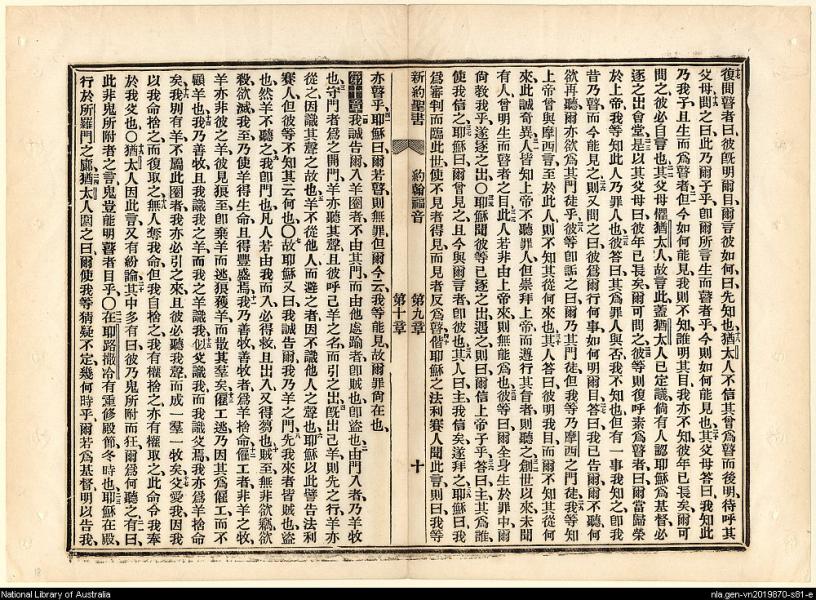 復問瞽者曰彼既明爾目爾言彼如何曰先知也猶太人不信其曾爲瞽而後明待呼其
父母問之曰此乃爾子乎卽爾所言生而瞽者乎今則如何能見也其父母答曰我知此
乃我子且生而爲瞽者但今如何能見我則不知誰明其目我亦不知彼年已長矣爾可
問之彼必自言也其父母懼猶太人故言此蓋猶太人已定議倘有人認耶穌爲基督必
逐之出會堂是以其父母曰彼年已長矣爾可問之彼等則復呼素爲瞽者曰爾當歸榮
於上帝我等知此人乃罪人也彼答曰其爲罪人與否我不知也但有一事我知之卽我
昔乃瞽而今能見之則又問之曰彼爲爾行何事如何明爾目答曰我已告爾爾不聽何
欲再聽爾亦欲爲其門徒乎彼等卽詬之曰爾乃其門徒但我等乃摩西之門徒我等知
上帝曾與摩西言至於此人則不知其從何來也其人答曰彼明我目而爾不知其從何
來此誠奇異人皆知上帝不聽罪人但崇拜上帝而遵行其旨者則聽之創世以來未聞
有人曾明生而瞽者之目此人若非由上帝來則無能爲也彼等曰爾全身生於罪中爾
尙敎我乎遂逐之出○耶穌聞彼等已逐之出遇之則曰爾信上帝子乎答曰主其爲誰
使我信之耶穌曰爾曾見之且今與爾言者卽彼也其人曰主我信矣遂拜之耶穌曰我
爲審判而臨此世使不見者得見而見者反爲瞽偕耶穌之法利賽人聞此言則曰我等
新約聖書 約翰福音 第九章 第十章 十
亦瞽乎耶穌曰爾若瞽則無罪但爾今云我等能見故爾罪尙在也
第十章我誠告爾入羊圈者不由其門而由他處踰者卽賊也卽盜也由門入者乃羊牧
也守門者爲之開門羊亦聽其聲且彼呼己羊之名而引之出旣出己羊則先之行羊亦
從之因識其聲之故也羊不從他人而避之者因不識他人之聲也耶穌以此譬告法利
賽人但彼等不知其云何也○故耶穌又曰我誠告爾我乃羊之門先我來者皆賊也盜
也然羊不聽之我卽門也凡人若由我而入必得救且出入又得芻也賊至無非欲竊欲
殺欲滅我至乃使羊得生命且得豐盛焉我乃善牧善牧者爲羊捨命傭工者非羊之牧
羊亦非彼之羊彼見狼至卽棄羊而逃狼獲羊而散其羣矣傭工逃乃因其爲傭工而不
顧羊也我乃善牧且我識我之羊而我之羊識我似父識我而我識父焉我亦爲羊捨命
矣我別有羊不屬此圈者我亦必引之來且彼必聽我聲而成一羣一牧矣父愛我因我
以我命捨之而復取之無人奪我命但我自捨之我有權捨之亦有權取之此命令我奉
於我父也○猶太人因此言又有紛論其中多有曰彼乃鬼所附而狂爾爲何聽之有曰
此非鬼所附者之言鬼豈能明瞽者目乎○在耶路撒冷有重修殿節冬時也耶穌在殿
行於所羅門之廊猶太人圍之曰爾使我等猜疑不定幾何時乎爾若爲基督明以告我
National Library of Australia
nla.gen-vn2019870-s81-e